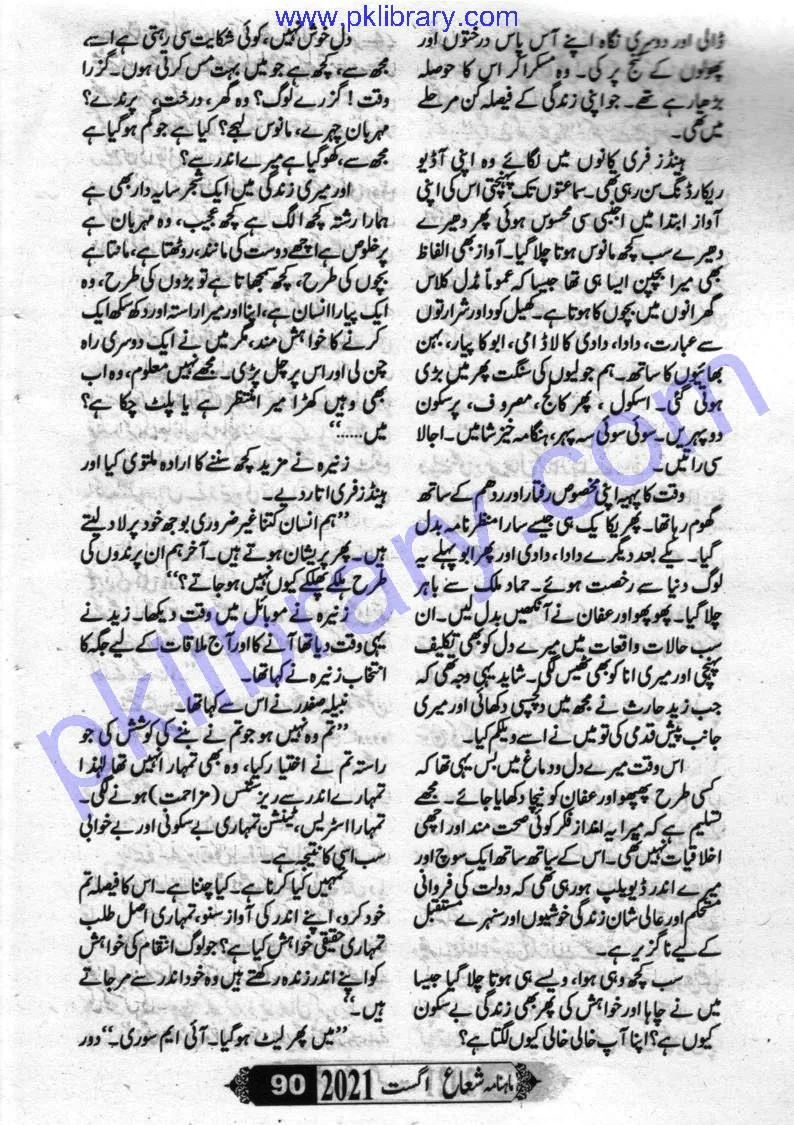 www.pklibrary.com
ڈالی اور دوسری نگاہ اپنے آس پاس درختوں اور
پھولوں کے کنج پر کی۔ وہ مسکرا کر اس کا حوصلہ
بڑھا رہے تھے۔ جو اپنی زندگی کے فیصلہ کن مرحلے
میں تھی۔
ہینڈز فری کانوں میں لگائے وہ اپنی آڈیو
ریکارڈنگ سن رہی تھی۔ سماعتوں تک پہنچتی اس کی اپنی
آواز ابتدا میں اجنبی سی محسوس ہوئی پھر دھیرے
دھیرے سب کچھ مانوس ہوتا چلا گیا۔ آواز بھی الفاظ
بھی میرا بچپن ایسا ہی تھا جیسا کہ عموماً مڈل کلاس
گھرانوں میں بچوں کا ہوتا ہے۔ کھیل کود اور شرارتوں
سے عبارت، دادا، دادی کا لاڈ امی، ابو کا پیار، بہن
بھائیوں کا ساتھ۔ ہم جولیوں کی سنگت پھر میں بڑی
ہوتی گئی۔ اسکول، پھر کالج، مصروف، پرسکون
دوپہریں۔ سوئی سوئی سہ پہر، ہنگامہ خیز شامیں۔ اجالا
سی راتیں۔
وقت کا پہیہ اپنی مخصوص رفتار اور ردھم کے ساتھ
گھوم رہا تھا۔ پھر یکا یک ہی جیسے سارا منظر نامہ بدل
گیا۔ یکے بعد دیگرے دادا، دادی اور پھر ابو پہلے یہ
لوگ دنیا سے رخصت ہوئے۔ حماد ملک سے باہر
چلا گیا۔ پھوپھو اور عفان نے آنکھیں بدل لیں۔ ان
سب حالات واقعات میں میرے دل کو بھی تکلیف
پہنچی اور میری انا کو بھی ٹھیس لگی۔ شاید یہی وجہ تھی کہ
جب زید حارث نے مجھ میں دلچسپی دکھائی اور میری
جانب پیش قدمی کی تو میں نے اسے ویلکم کیا۔
اس وقت میرے دل و دماغ میں بس یہی تھا کہ
کسی طرح پھپھو اور عفان کو نیچا دکھایا جائے۔ مجھے
تسلیم ہے کہ میرا یہ انداز فکر کوئی صحت مند اور اچھی
اخلاقیات نہیں تھی۔ اس کے ساتھ ساتھ ایک سوچ اور
میرے اندر ڈیویلپ ہو رہی تھی کہ دولت کی فروانی
مستحکم اور عالی شان زندگی خوشیوں اور سنہرے مستقبل
کے لیے ناگزیر ہے۔
سب کچھ وہی ہوا، ویسے ہی ہوتا چلا گیا جیسا
میں نے چاہا اور خواہش کی پھر بھی زندگی بے سکون
کیوں ہے؟ اپنا آپ خالی خالی کیوں لگتا ہے؟
دل خوش نہیں، کوئی شکایت سی رہتی ہے اسے
مجھ سے، کچھ ہے جو میں بہت مس کرتی ہوں۔ گزرا
وقت! گزرے لوگ؟ وہ گھر، درخت، پرندے؟
مہربان چہرے، مانوس لہجے؟ کیا ہے جو گم ہو گیا ہے
مجھ سے، کھو گیا ہے میرے اندر سے؟
اور میری زندگی میں ایک شجر سایہ دار بھی ہے
ہمارا رشتہ کچھ الگ ہے کچھ عجیب، وہ مہربان ہے
پر خلوص ہے اچھے دوست کی مانند، روٹھتا ہے، مانتا ہے
بچوں کی طرح، کچھ سمجھاتا ہے تو بڑوں کی طرح، وہ
ایک پیارا انسان ہے، اپنا اور میرا راستہ اور دکھ سکھ ایک
کرنے کا خواہش مند، مگر میں نے ایک دوسری راہ
چن لی اور اس پر چل پڑی۔ مجھے نہیں معلوم، وہ اب
بھی وہیں کھڑا میرا منتظر ہے یا پلٹ چکا ہے؟
میں......“
زنیرہ نے مزید کچھ سننے کا ارادہ ملتوی کیا اور
ہینڈز فری اتار دیے۔
”ہم انسان کتنا غیر ضروری بوجھ خود پر لاد لیتے
ہیں۔ پھر پریشان ہوتے ہیں۔ آخر ہم ان پرندوں کی
طرح ہلکے پھلکے کیوں نہیں ہو جاتے؟“
زنیرہ نے موبائل میں وقت دیکھا۔ زید نے
یہی وقت دیا تھا آنے کا اور آج ملاقات کے لیے جگہ کا
انتخاب زنیرہ نے کہا تھا۔
نبیلہ صفدر نے اس سے کہا تھا۔
”تم وہ نہیں ہو جو تم نے بننے کی کوشش کی جو
راستہ تم نے اختیار کیا، وہ بھی تمہارا نہیں تھا لہٰذا
تمہارے اندر سے ریزسٹنس (مزاحمت) ہونے لگی۔
تمہارا اسٹریس، ٹینشن تمہاری بے سکونی اور بے خوابی
سب اسی کا نتیجہ ہے۔
تمہیں کیا کرنا ہے۔ کیا چننا ہے۔ اس کا فیصلہ تم
خود کرو، اپنے اندر کی آواز سنو، تمہاری اصل طلب
تمہاری حقیقی خواہش کیا ہے؟ جو لوگ انتقام کی خواہش
کو اپنے اندر زندہ رکھتے ہیں وہ خود اندر سے مر جاتے
ہیں۔“
”میں پھر لیٹ ہو گیا۔ آئی ایم سوری۔“ دور
ماہنامہ شعاع اگست 2021 90
pklibrary.com